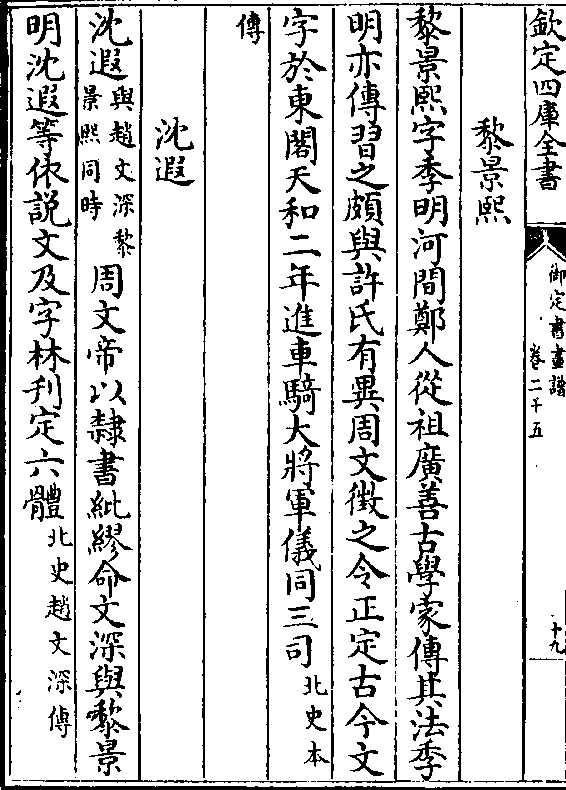 欽定四庫全書
御定書畫譜
卷二十五
十九
黎景熙
黎景熙字季明河間鄭人從祖廣善古學家傳其法季
明亦傳習之頗與許氏有異周文徵之令正定古今文
字於東閣天和二年進車騎大將軍儀同三司北史本
傳
沈遐
沈遐與趙文深黎
景熙同時周文帝以隸書紕繆命文深與黎景
明沈遐等依說文及字林刋定六體北史趙文深傳